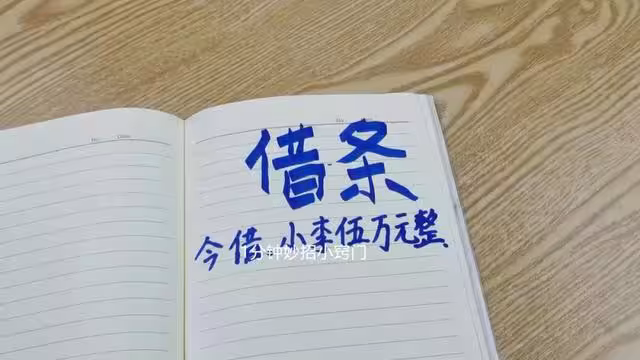 借条
今借 小李伍万元整
1分钟妙招小窍门